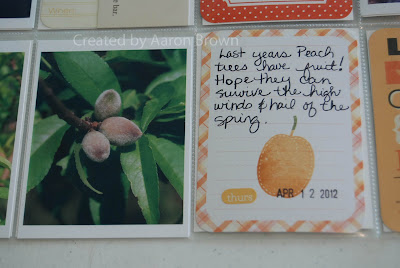 Created by Aaron Brown
Last years Peach
trees have fruit!
Hope they can
survive the high
winds & hail of the
spring.
thurs
APR 12 2012